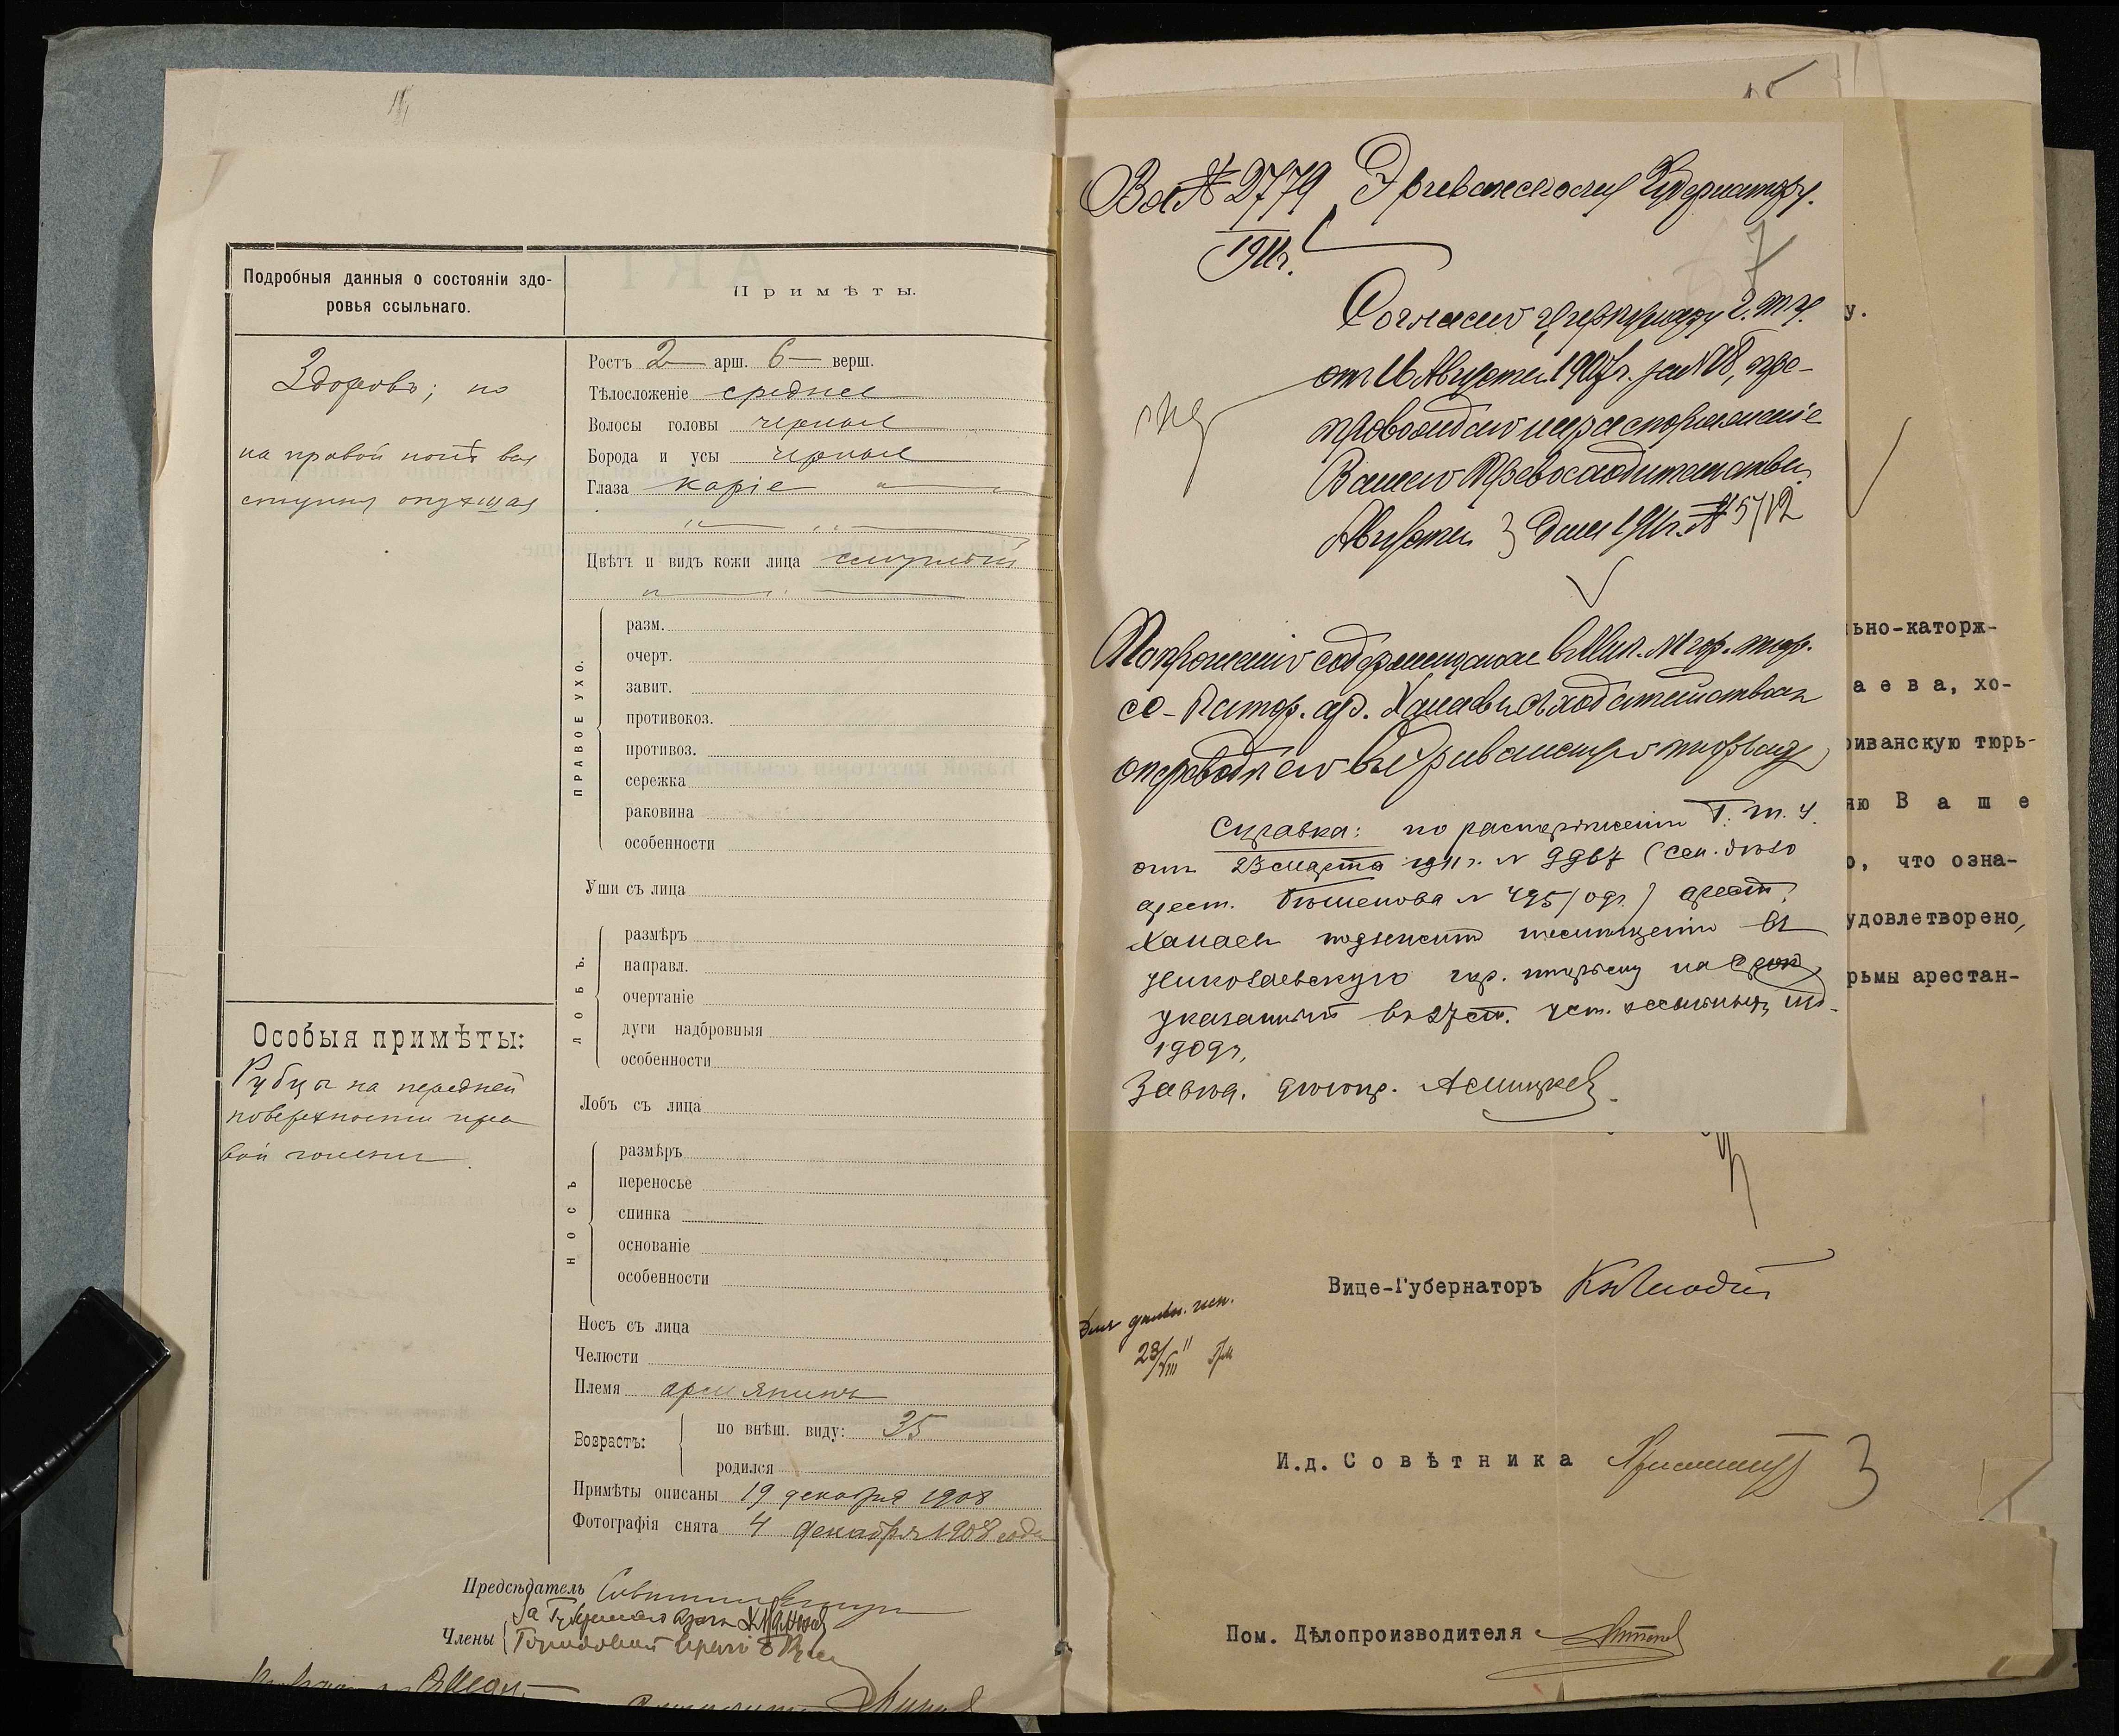 Подробныя данныя о состояніи здо-
ровья ссыльнаго.
Здоровъ; но
на правой ногѣ вся
ступня
Особыя примѣты:
Рубцы на передней
поверхности пра
вой голени
Примѣты.
Ростъ 2 арш. 6 верш.
Тѣлосложеніе среднее
Волосы головы черные
Борода и усы черные
Глаза каріе
Цвѣтъ и видъ кожи лица смуглый
ПРАВОЕ УХО.
разм.
очерт.
завит.
противокоз.
противоз.
сережка
раковина
особенности
Уши съ лица
ЛОБЪ.
размѣръ
направл.
очертаніе
дуги надбровныя
особенности
Лобъ съ лица
НОСЪ
размѣръ
переносье
спинка
основаніе
особенности
Носъ съ лица
Челюсти
Племя армянинъ
Возрастъ:
по внѣш. виду: 35
родился
Примѣты описаны 19 декабря 1908
Фотографія снята 4 декабря 1908 года
Предсѣдатель
За Губернскаго врача
Члены Городовой врачъ
Вх № 2779 Эриванскому Губернатору.
1911г.
7
Согласно циркуляру Г. Т. У.
от 16 Августа 1907г. за № 18, пре-
провождаю на распоряженіе
Вашего Превосходительства
Августа 3 дня 1911г. № 5712
По прошенію содержащагося в
сс-катор. ар. Ханаева съ ходатайствомъ
о переводѣ его въ Эриванскую тюрьму
Справка: по распоряженію Г. Т. У.
отъ 23 марта 1911 г. № 9967 (сек. дѣло
арест. № 495/09г.) арест.
Ханаев подлежитъ помѣщенію въ
Николаевскую тюрьму на срок
указанный въ 27 ст. уст. ссыльныхъ изд.
1909г.
Завѣд. дѣлопр.
у.
ьно-каторж-
аева, хо-
риванскую тюрь-
яю Ваше
о, что озна-
удовлетворено,
рьмы арестан-
Вице-Губернаторъ
28/VIII 11
И.д. Совѣтника
3
Пом. Дѣлопроизводителя